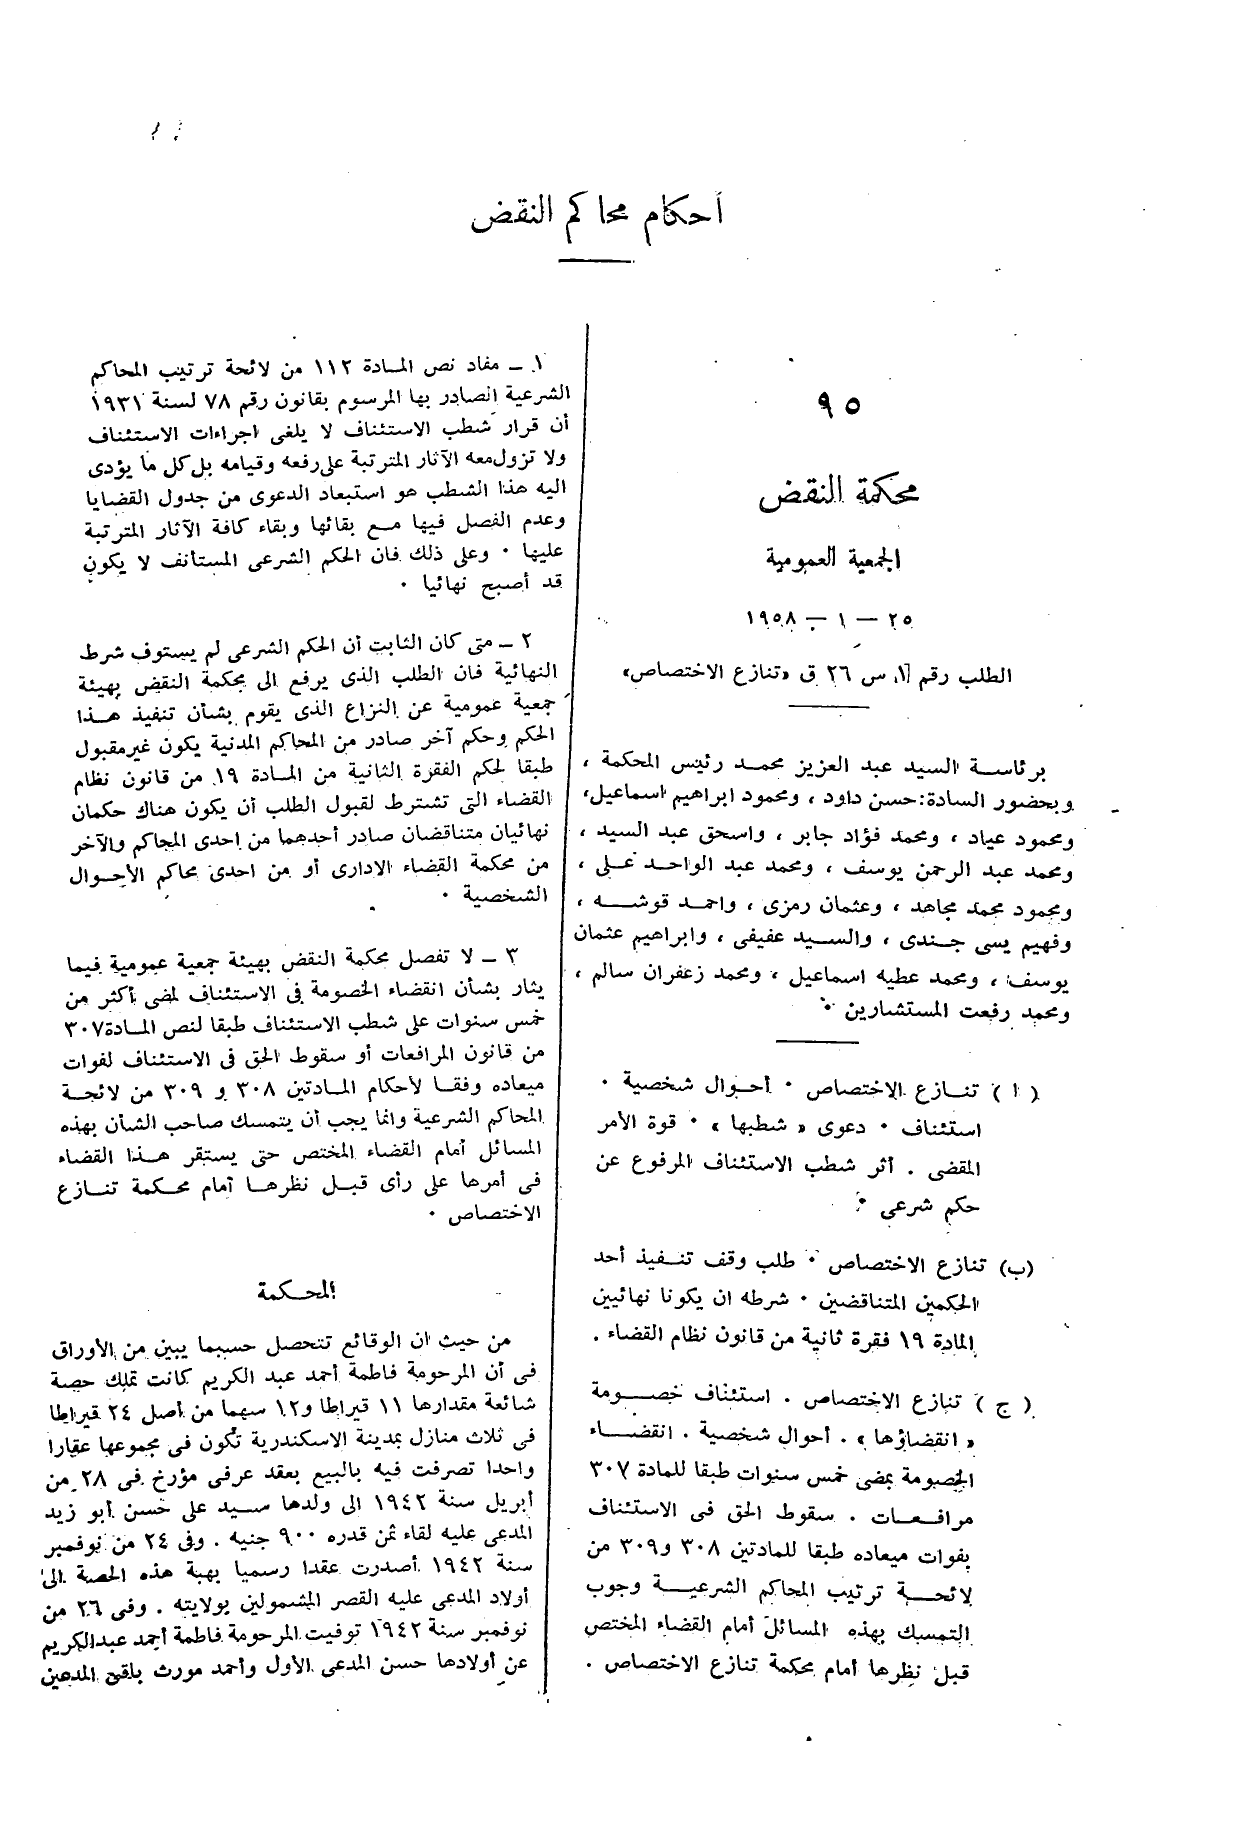 أحكام محاكم النقض
٩٥
محكمة النقض
الجمعية العمومية
٢٥ — ١ — ١٩٥٨
الطلب رقم ١ س ٢٦ ق «تنازع الاختصاص»
برئاسة السيد عبد العزيز محمد رئيس المحكمة ،
وبحضور السادة: حسن داود ، ومحمود ابراهيم اسماعيل،
ومحمود عياد ، ومحمد فؤاد جابر ، واسحق عبد السيد ،
ومحمد عبد الرحمن يوسف ، ومحمد عبد الواحد على ،
ومحمود محمد مجاهد ، وعثمان رمزى ، واحمد قوشه ،
وفهيم يسى جندى ، والسيد عفيفى ، وابراهيم عثمان
يوسف ، ومحمد عطيه اسماعيل ، ومحمد زعفران سالم ،
ومحمد رفعت المستشارين ٠
( ا ) تنازع الاختصاص ٠ أحوال شخصية ٠
استئناف ٠ دعوى « شطبها » ٠ قوة الأمر
المقضى . أثر شطب الاستئناف المرفوع عن
حكم شرعى ٠
(ب) تنازع الاختصاص ٠ طلب وقف تنفيذ أحد
الحكمين المتناقضين ٠ شرطه ان يكونا نهائيين
المادة ١٩ فقرة ثانية من قانون نظام القضاء .
( ج ) تنازع الاختصاص . استئناف خصومة
« انقضاؤها » . أحوال شخصية . انقضاء
الخصومة بمضى خمس سنوات طبقا للمادة ٣٠٧
مرافعات . سقوط الحق فى الاستئناف
بفوات ميعاده طبقا للمادتين ٣٠٨ و٣٠٩ من
لائحة ترتيب المحاكم الشرعية وجوب
التمسك بهذه المسائل أمام القضاء المختص
قبل نظرها أمام محكمة تنازع الاختصاص .
١ ـ مفاد نص المادة ١١٢ من لائحة ترتيب المحاكم
الشرعية الصادر بها المرسوم بقانون رقم ٧٨ لسنة ١٩٣١
أن قرار شطب الاستئناف لا يلغى اجراءات الاستئناف
ولا تزول معه الآثار المترتبة على رفعه وقيامه بل كل ما يؤدى
اليه هذا الشطب هو استبعاد الدعوى من جدول القضايا
وعدم الفصل فيها مع بقائها وبقاء كافة الآثار المترتبة
عليها ٠ وعلى ذلك فان الحكم الشرعى المستأنف لا يكون
قد أصبح نهائيا ٠
٢ ـ متى كان الثابت أن الحكم الشرعى لم يستوف شرط
النهائية فان الطلب الذى يرفع الى محكمة النقض بهيئة
جمعية عمومية عن النزاع الذى يقوم بشأن تنفيذ هذا
الحكم وحكم آخر صادر من المحاكم المدنية يكون غير مقبول
طبقا لحكم الفقرة الثانية من المادة ١٩ من قانون نظام
القضاء التى تشترط لقبول الطلب أن يكون هناك حكمان
نهائيان متناقضان صادر أحدهما من احدى المحاكم والآخر
من محكمة القضاء الادارى أو من احدى محاكم الأحوال
الشخصية ٠
٣ ـ لا تفصل محكمة النقض بهيئة جمعية عمومية فيما
يثار بشأن انقضاء الخصومة فى الاستئناف لمضى أكثر من
خمس سنوات على شطب الاستئناف طبقا لنص المادة ٣٠٧
من قانون المرافعات أو سقوط الحق فى الاستئناف لفوات
ميعاده وفقا لأحكام المادتين ٣٠٨ و ٣٠٩ من لائحة
المحاكم الشرعية وانما يجب أن يتمسك صاحب الشأن بهذه
المسائل أمام القضاء المختص حتى يستقر هذا القضاء
فى أمرها على رأى قبل نظرها أمام محكمة تنازع
الاختصاص ٠
المحكمة
من حيث ان الوقائع تتحصل حسبما يبين من الأوراق
فى أن المرحومة فاطمة أحمد عبد الكريم كانت تملك حصة
شائعة مقدارها ١١ قيراطا و١٢ سهما من أصل ٢٤ قيراطا
فى ثلاث منازل بمدينة الاسكندرية تكون فى مجموعها عقارا
واحدا تصرفت فيه بالبيع بعقد عرفى مؤرخ فى ٢٨ من
أبريل سنة ١٩٤٢ الى ولدها سيد على حسن أبو زيد
المدعى عليه لقاء ثمن قدره ٩٠٠ جنيه . وفى ٢٤ من نوفمبر
سنة ١٩٤٢ أصدرت عقدا رسميا بهبة هذه الحصة الى
أولاد المدعى عليه القصر المشمولين بولايته . وفى ٢٦ من
نوفمبر سنة ١٩٤٢ توفيت المرحومة فاطمة أحمد عبدالكريم
عن أولادها حسن المدعى الأول وأحمد مورث باقى المدعين